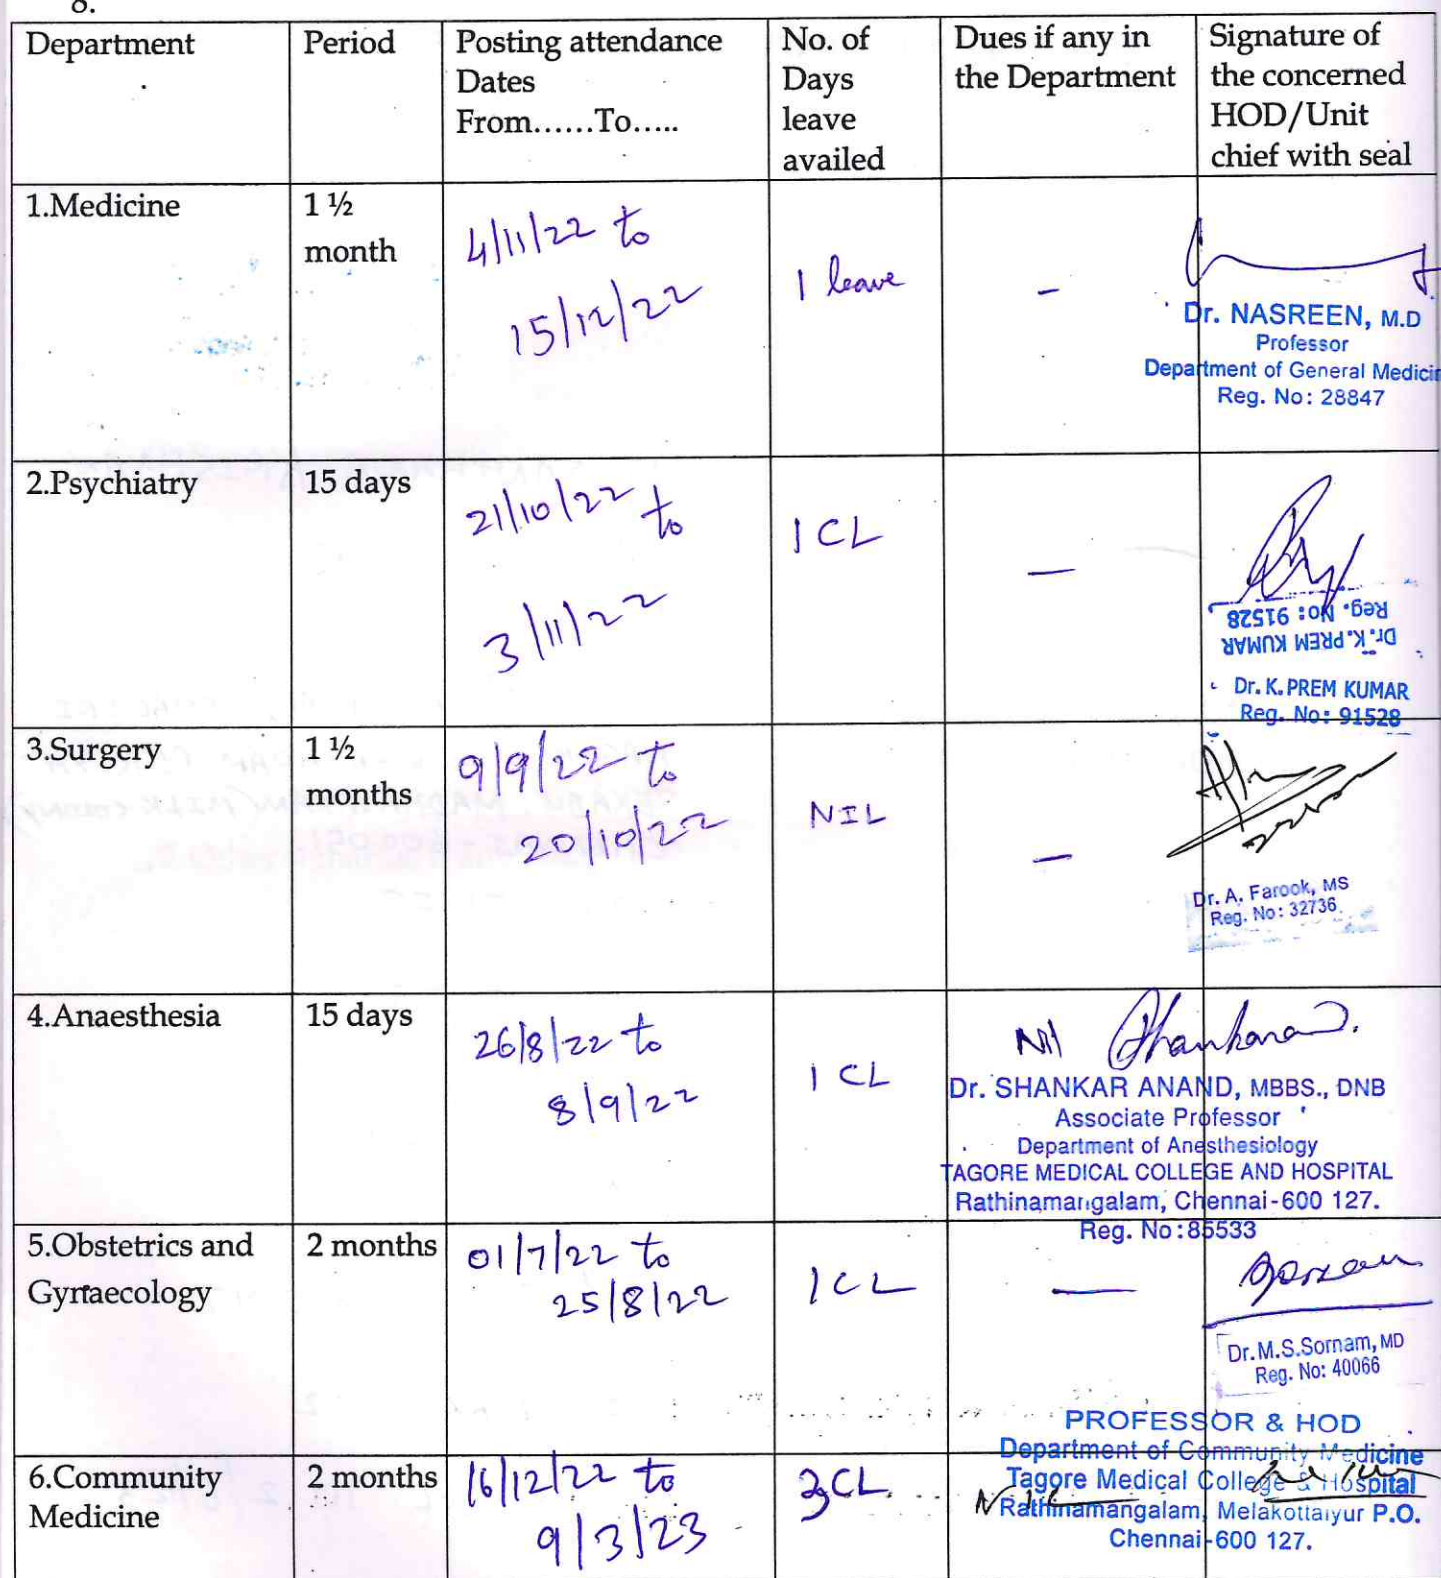 8.
Department
Period
Posting attendance
Dates
From......To.....
No. of
Days
leave
availed
Dues if any in
the Department
Signature of
the concerned
HOD/Unit
chief with seal
1.Medicine
1 ½
month
4/11/22 to
15/12/22
1 leave
-
Dr. NASREEN, M.D
Professor
Department of General Medicin
Reg. No: 28847
2.Psychiatry
15 days
21/10/22 to
3/11/22
1 CL
—
Reg. No: 91528
Dr. K. PREM KUMAR
Dr. K. PREM KUMAR
Reg. No: 91528
3.Surgery
1 ½
months
9/9/22 to
20/10/22
NIL
—
Dr. A. Farook, MS
Reg. No: 32736
4.Anaesthesia
15 days
26/8/22 to
8/9/22
1 CL
Nil
Dr. SHANKAR ANAND, MBBS., DNB
Associate Professor
Department of Anesthesiology
TAGORE MEDICAL COLLEGE AND HOSPITAL
Rathinamangalam, Chennai-600 127.
Reg. No:85533
5.Obstetrics and
Gynaecology
2 months
01/7/22 to
25/8/22
1 CL
—
Dr.M.S.Sornam, MD
Reg. No: 40066
6.Community
Medicine
2 months
16/12/22 to
9/3/23
3CL
Nil
PROFESSOR & HOD
Department of Community Medicine
Tagore Medical College & Hospital
Rathinamangalam, Melakottaiyur P.O.
Chennai-600 127.